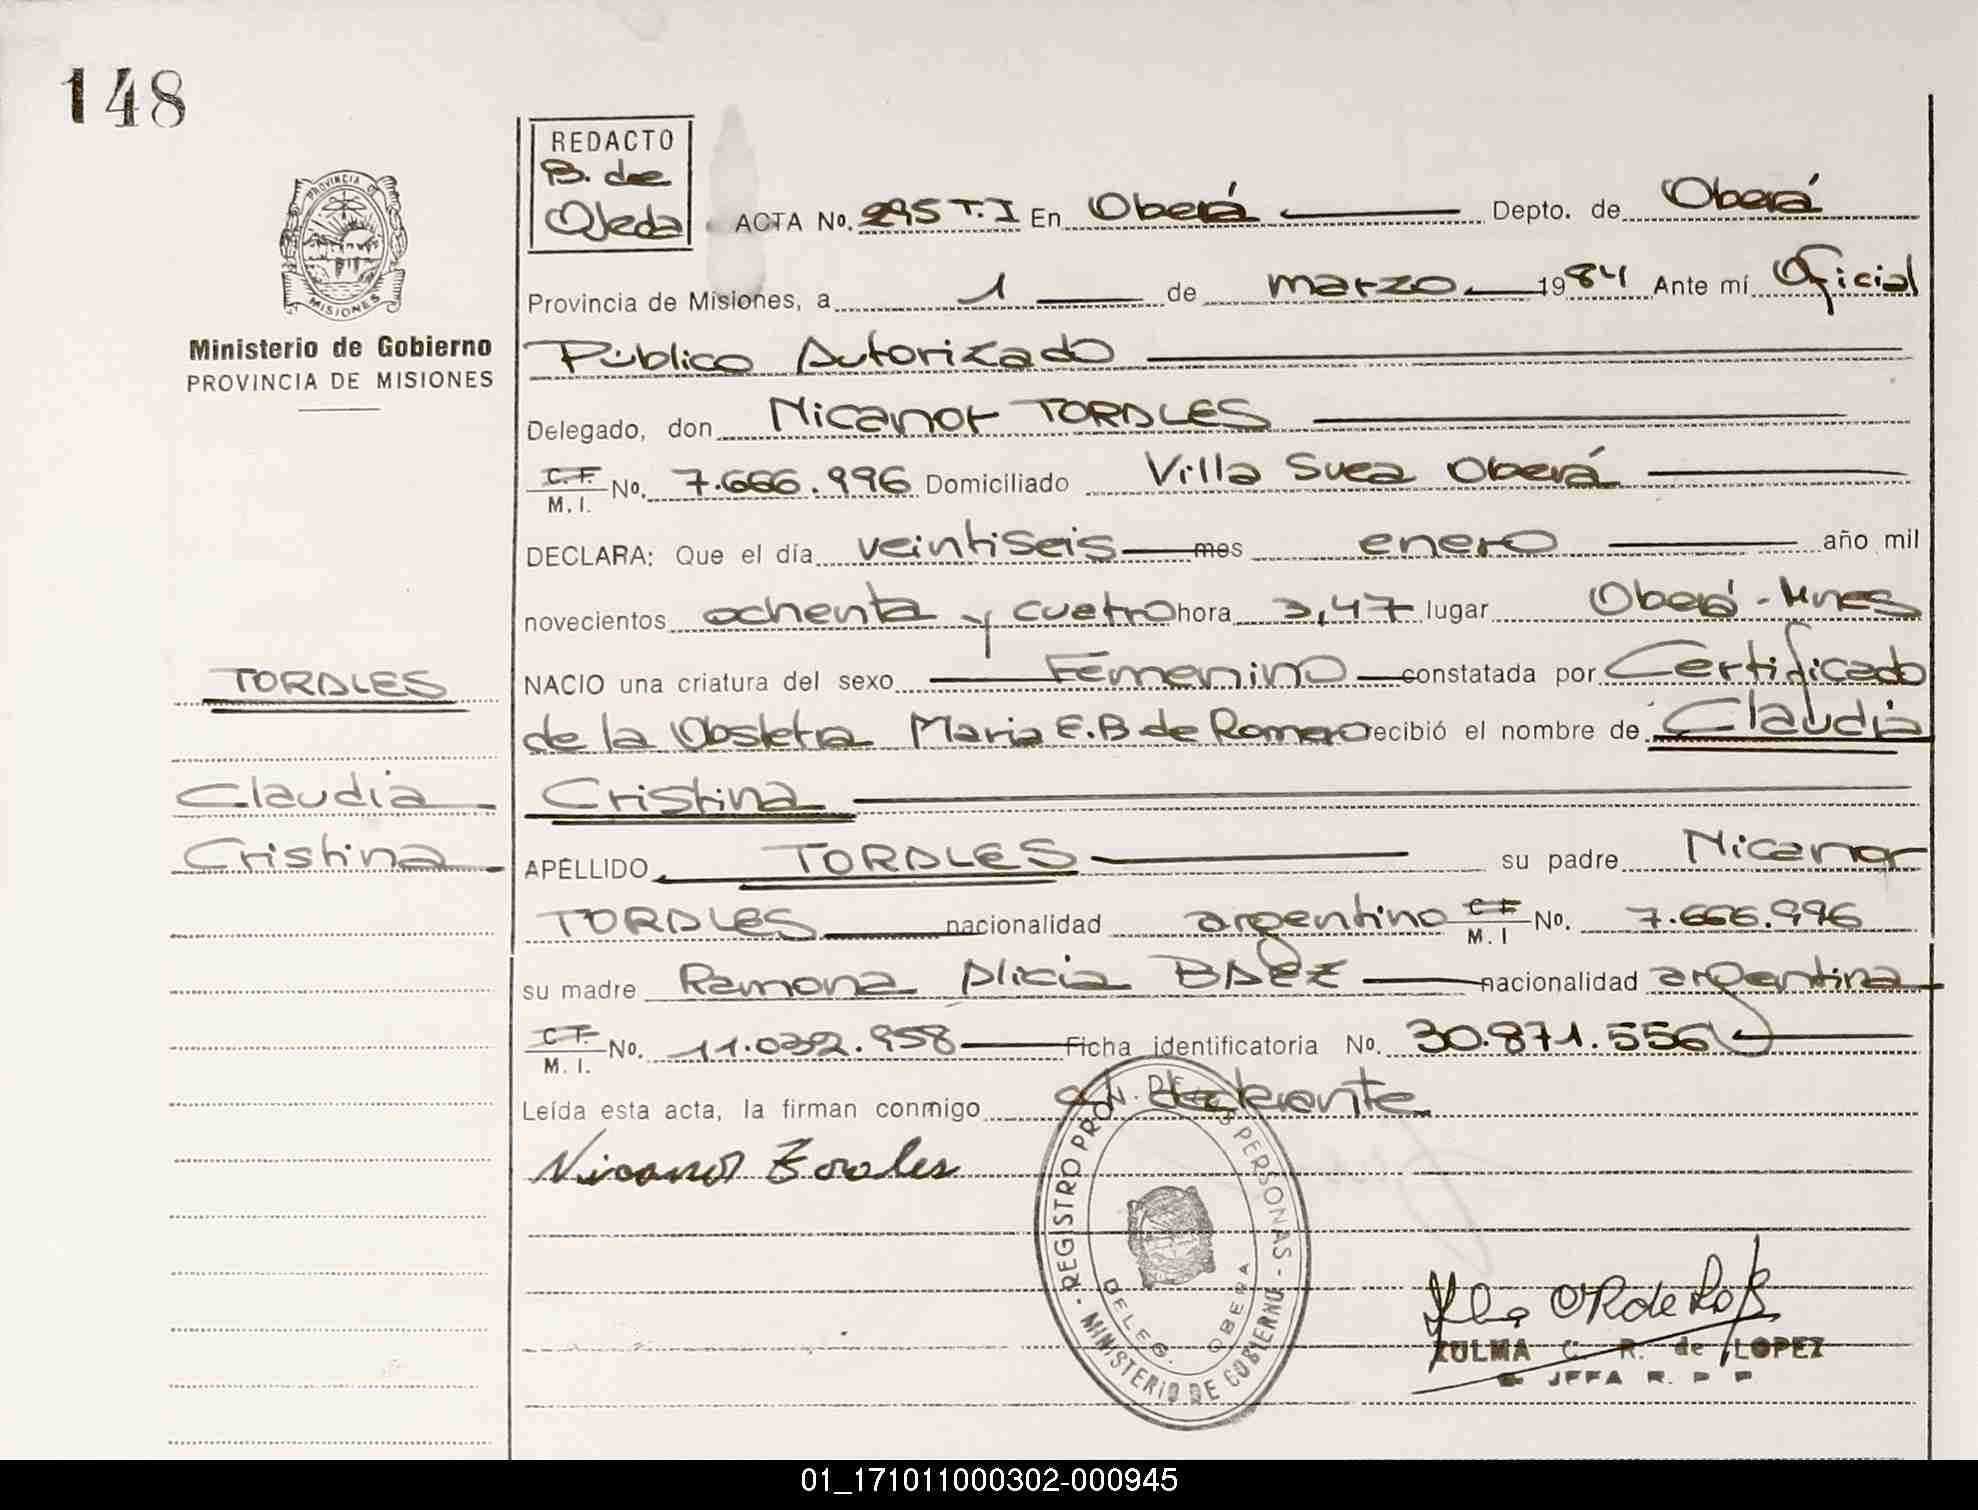 148
REDACTO
B. de
Ojeda
ACTA No. 295 T.I En Oberá Depto. de Oberá
Provincia de Misiones, a 1 de marzo 1984 Ante mí Oficial
Público Autorizado
PROVINCIA DE
MISIONES
Ministerio de Gobierno
PROVINCIA DE MISIONES
Delegado, don Nicanor TORALES
C.F.
M.I. No. 7.666.996 Domiciliado Villa Svea Oberá
DECLARA: Que el día veintiseis mes enero año mil
novecientos ochenta y cuatro hora 3,47 lugar Oberá - Mnes
TORALES
NACIO una criatura del sexo Femenino constatada por Certificado
de la Obstetra Maria E.B de Romero recibió el nombre de Claudia
Claudia
Cristina
Cristina
APELLIDO TORALES su padre Nicanor
TORALES nacionalidad argentino C F
M. I No. 7.666.996
su madre Ramona Alicia BAEZ nacionalidad argentina
C.F.
M. I. No. 11.032.958 Ficha identificatoria No. 30.871.556
Leída esta acta, la firman conmigo el declarante
Nicanor Torales
REGISTRO PROV. DE LAS PERSONAS - MINISTERIO DE GOBIERNO -
DELEG. OBERA
ZULMA C. R. de LOPEZ
JEFA R. P. P.
01_171011000302-000945